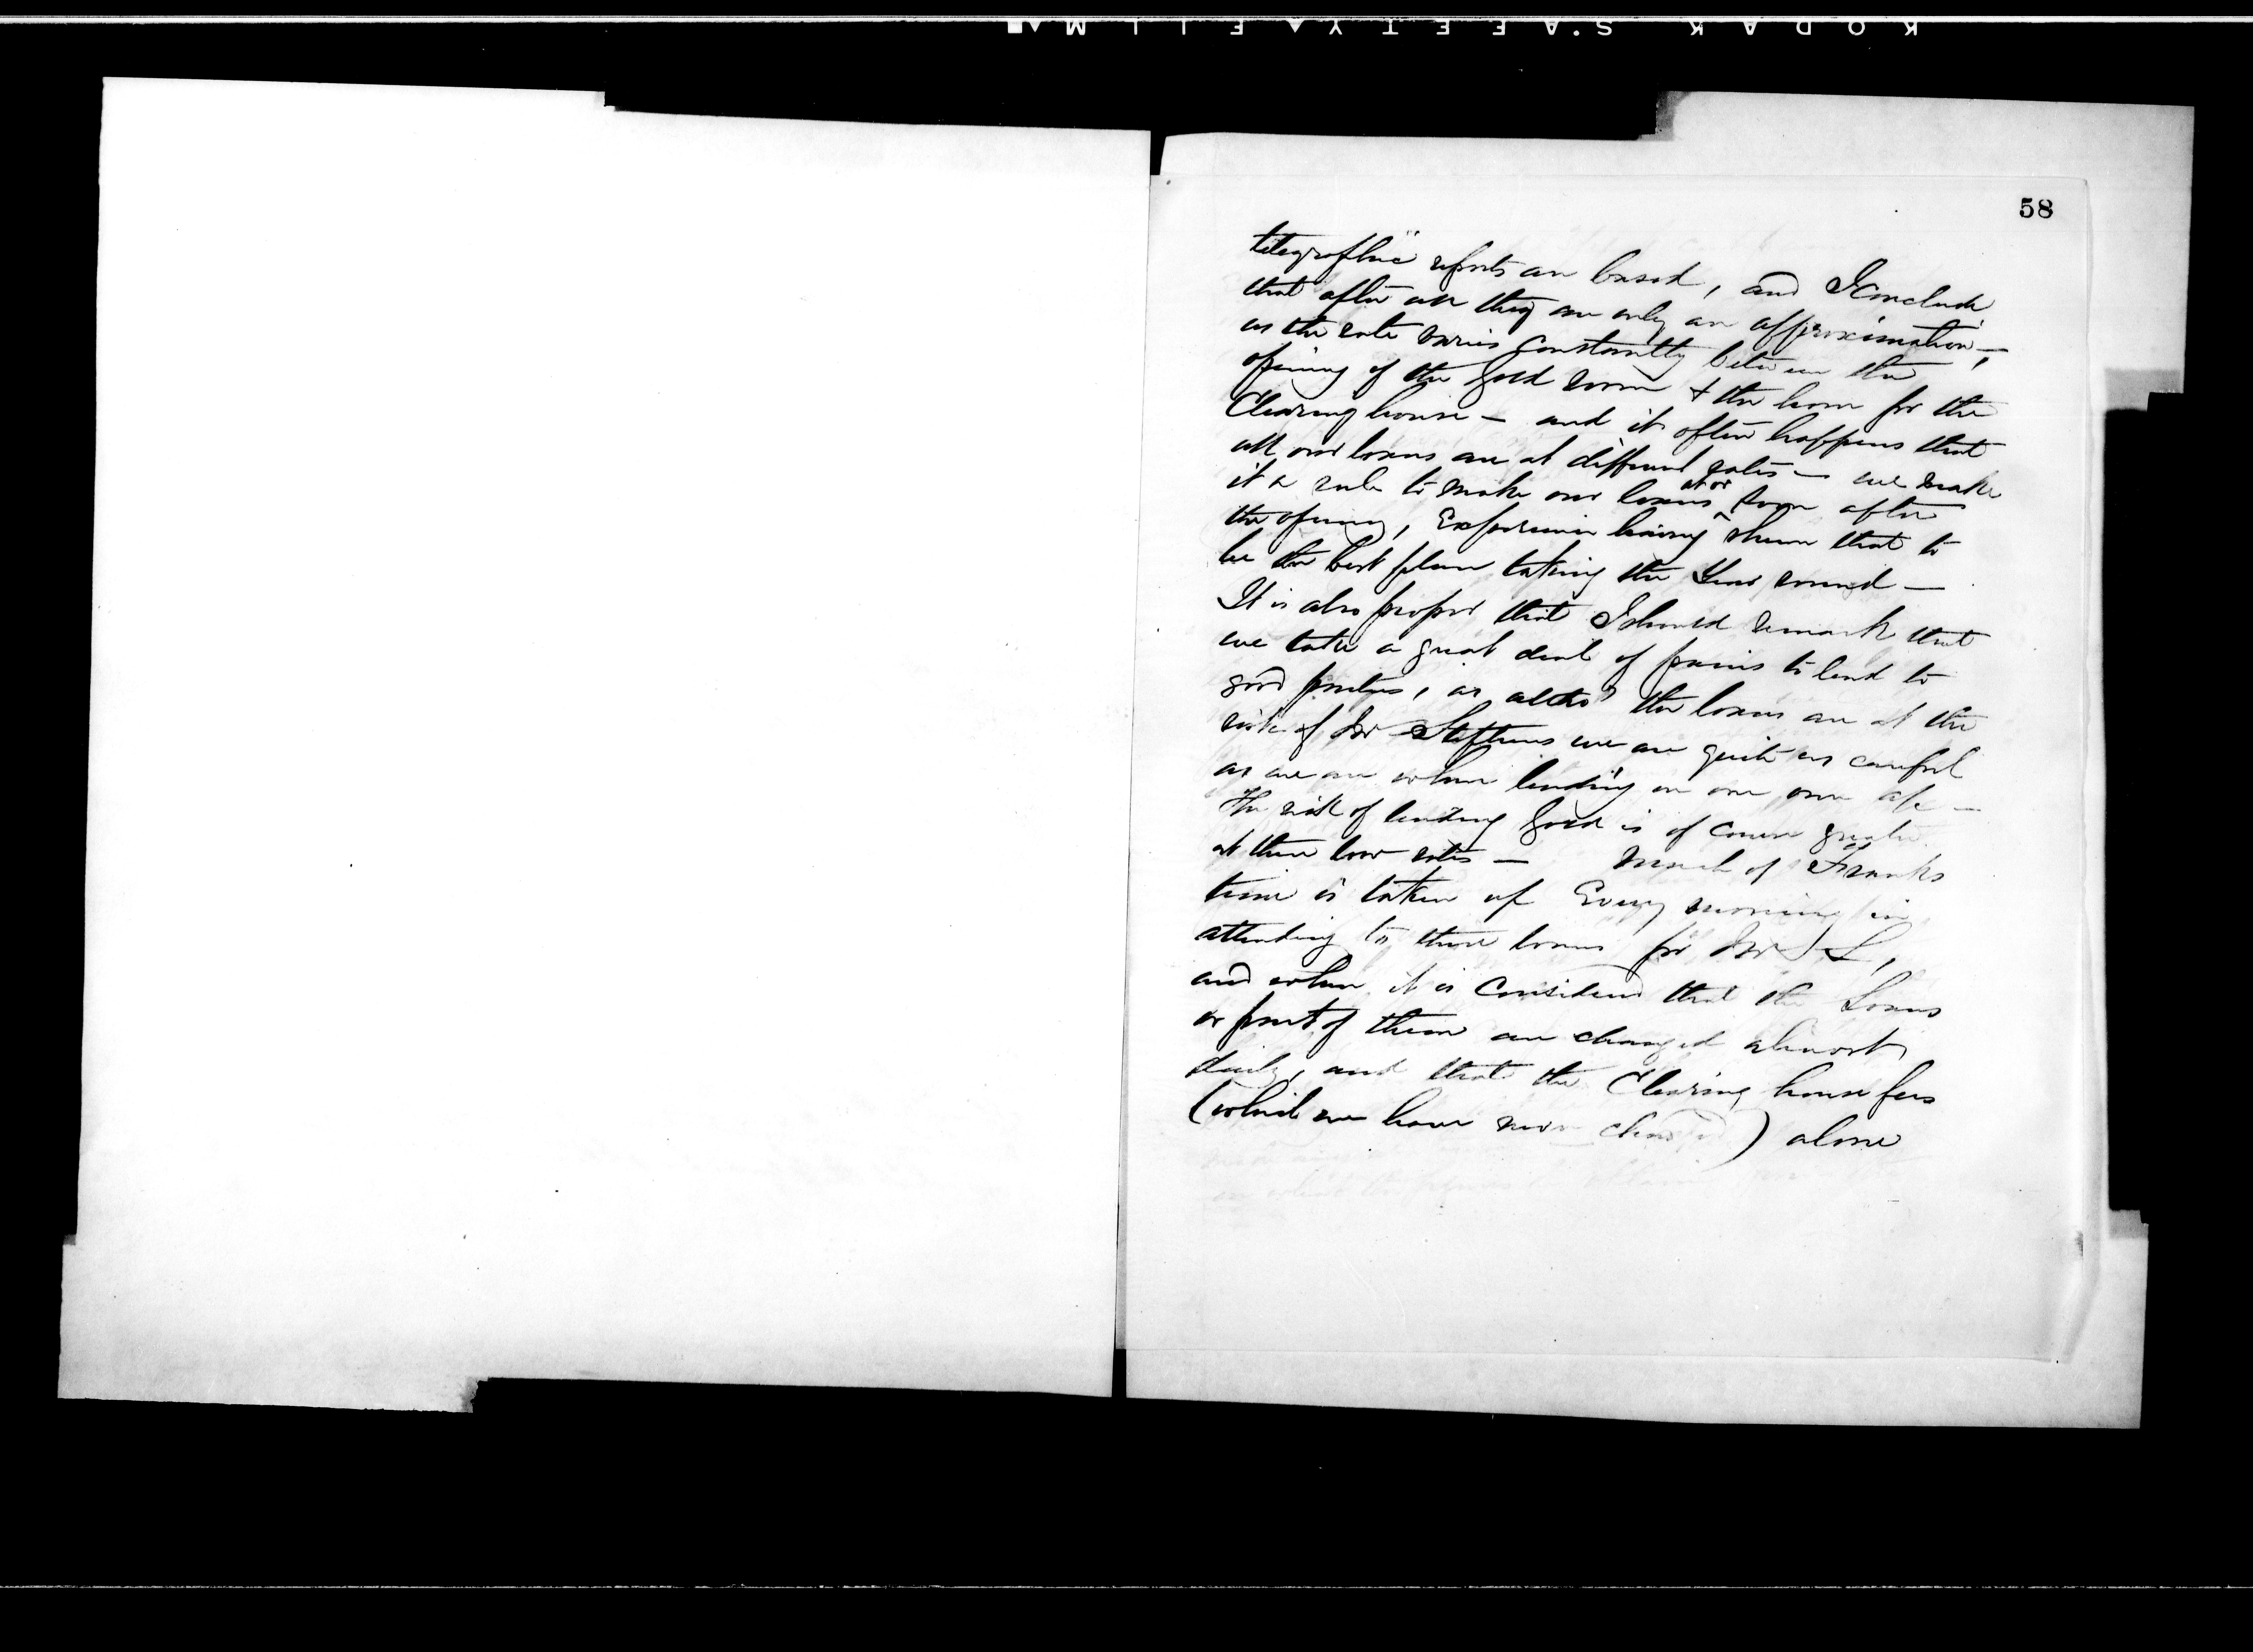 KODAK SAFETY FILM
58
telegraphic reports are based, and I conclude
that after all they are only an approximation,—
as the rate varies constantly between the
opening of the gold room & the hour for the
Clearing house — and it often happens that
all our loans are at different rates — we make
it a rule to make our loans at or soon after
the opening, Experience having shewn that to
be the best plan taking the Year round —
It is also proper that I should remark that
we take a great deal of pains to lend to
good parties, as altho' the loans are at the
risk of Mr Stephens we are quite as careful
as we are when lending on our own a/c —
The risk of lending Gold is of course greater
at these low rates — Much of Franks
time is taken up Every morning in
attending to these loans for Mr S,
and when it is Considered that the Loans
or part of them are changed almost
daily, and that the Clearing house fees
(which we have never charged) alone